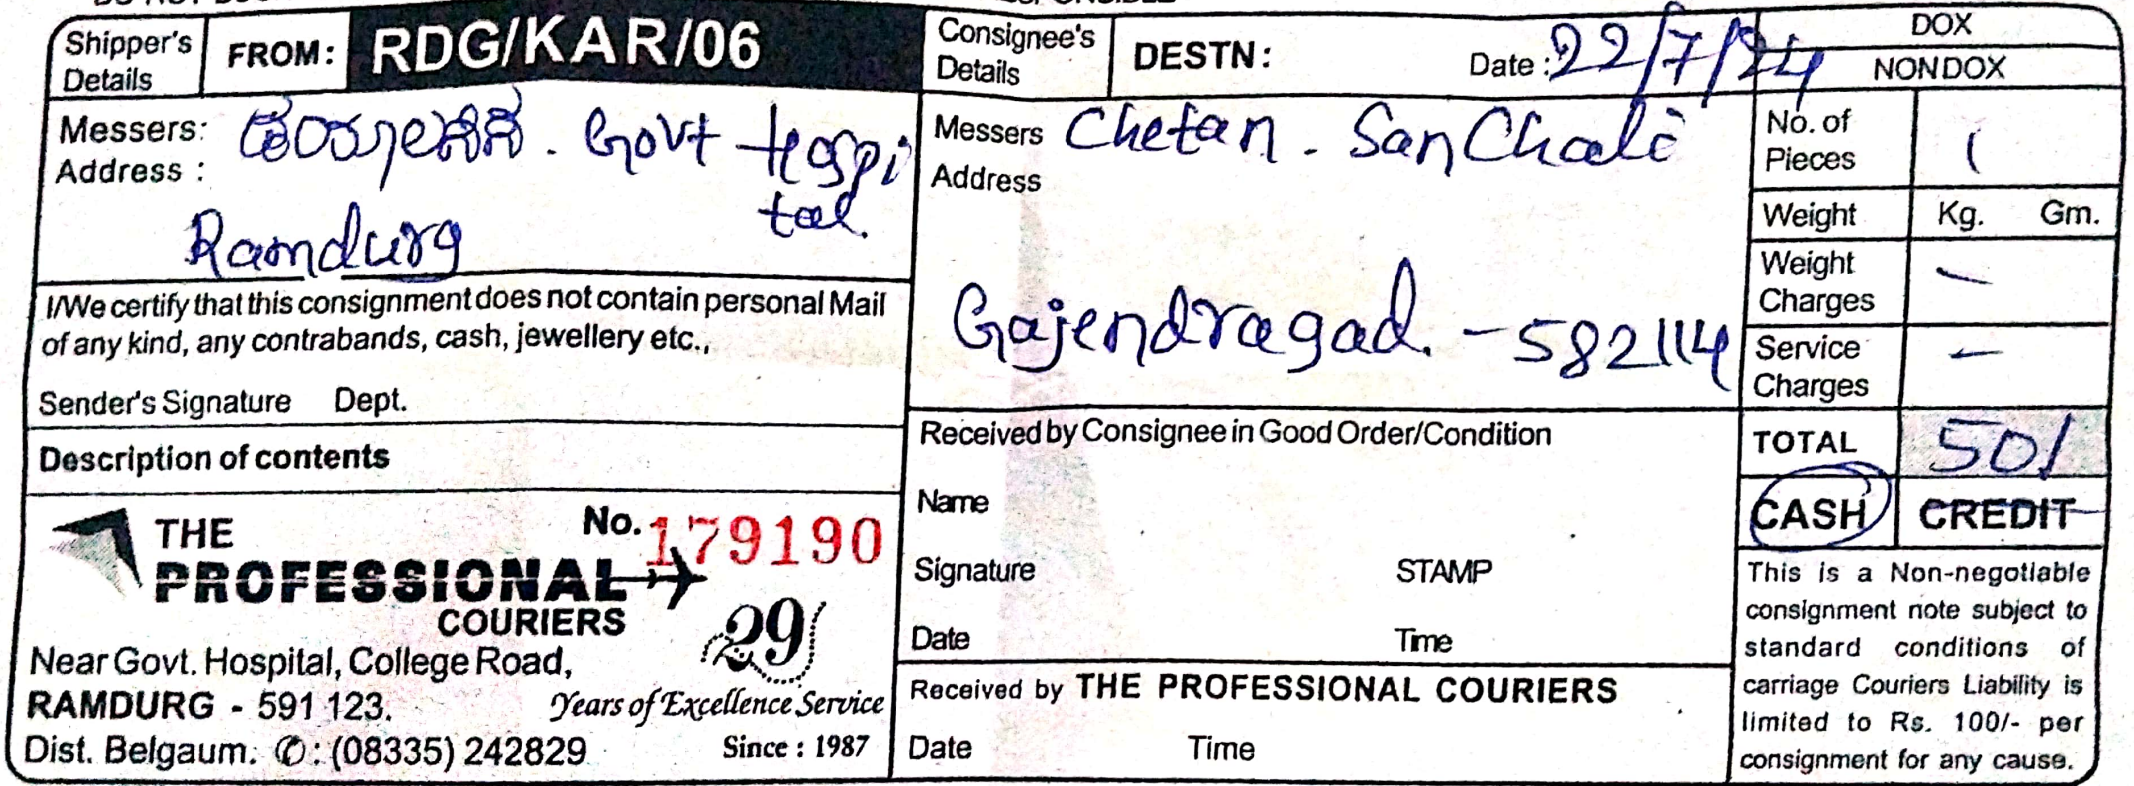 Shipper's Details FROM: RDG/KAR/06
Messers: Govt Hospi
Address : tal.
Ramdurg
I/We certify that this consignment does not contain personal Mail
of any kind, any contrabands, cash, jewellery etc.,
Sender's Signature Dept.
Description of contents
THE No. 179190
PROFESSIONAL
COURIERS
29
Near Govt. Hospital, College Road,
RAMDURG - 591 123. Years of Excellence Service
Dist. Belgaum. ✆: (08335) 242829 Since : 1987
Consignee's Details DESTN: Date : 22/7/24
Messers Chetan. Sanchali
Address
Gajendragad. - 582114
Received by Consignee in Good Order/Condition
Name
Signature STAMP
Date Time
Received by THE PROFESSIONAL COURIERS
Date Time
DOX
NONDOX
No. of Pieces 1
Weight Kg. Gm.
Weight Charges —
Service Charges —
TOTAL 50/
CASH CREDIT
This is a Non-negotiable
consignment note subject to
standard conditions of
carriage Couriers Liability is
limited to Rs. 100/- per
consignment for any cause.